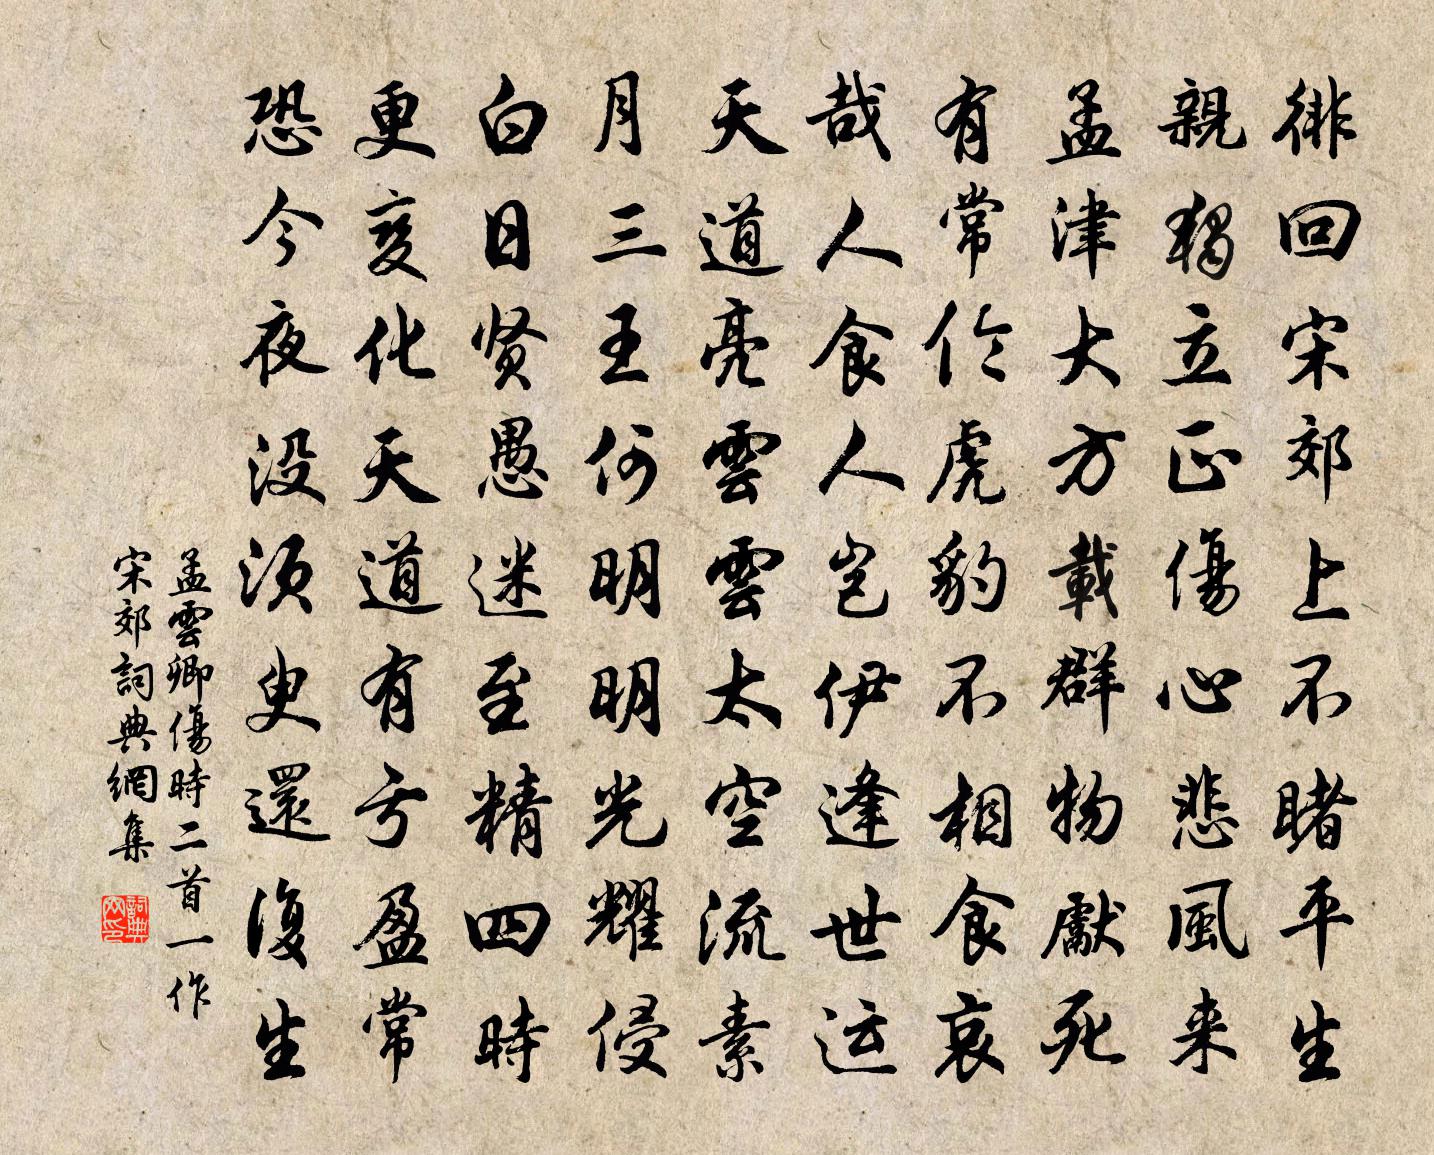 徘回宋郊上不睹平生
親獨立正傷心悲風来
孟津大方載群物獻死
有常伦虎豹不相食哀
哉人食人岂伊逢世运
天道亮雲雲太空流素
月三王何明明光耀侵
白日贤愚迷至精四時
更变化天道有亏盈常
恐今夜没须臾還復生
孟雲卿傷時二首一作
宋郊詞典網集
詞典网印